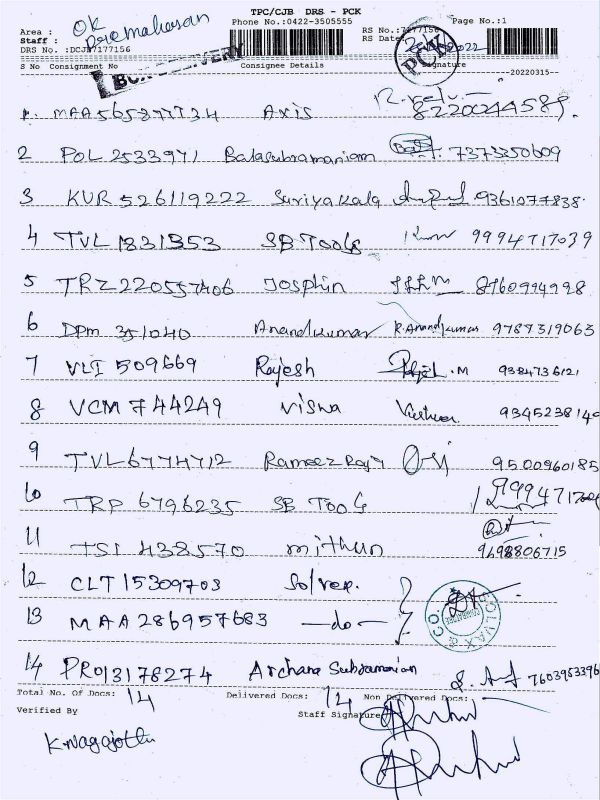 TPC/CJB DRS - PCK
Phone No.:0422-3505555 Page No.:1
Area : OK
Staff : Premahasan
DRS No. :DCJB7177156
RS No.:7177156
RS Date
PCK
S No Consignment No Consignee Details Signature
BOX DELIVERY
-20220315-
1. MAA565277734 Axis 8220244589.
2 POL 2533971 Balasubramaniam 7373350609
3 KUR 526119222 Suriyakala 9361077838.
4 TVL 1831353 SB Tools 9994717039
5 TRZ 220557406 Josphin 8760994998
6 DPM 351040 Anandkumar R.Anandkumar 9787319063
7 VLI 509669 Rajesh 9384736121
8 VCM 744249 Viswa 9345238140
9 TVL6774712 Rameez Raja 9500960185
10 TRP 6796235 SB Tools
11 TSI 438570 Mithun 9498806715
12 CLT 15309703 Solvex.
13 MAA 286957683 —do—
14 PRO13178274 Archana Subramanian 7603953396
Total No. Of Docs: 14 Delivered Docs: 14 Non Delivered Docs:
Verified By Staff Signature
K.Nagajothi